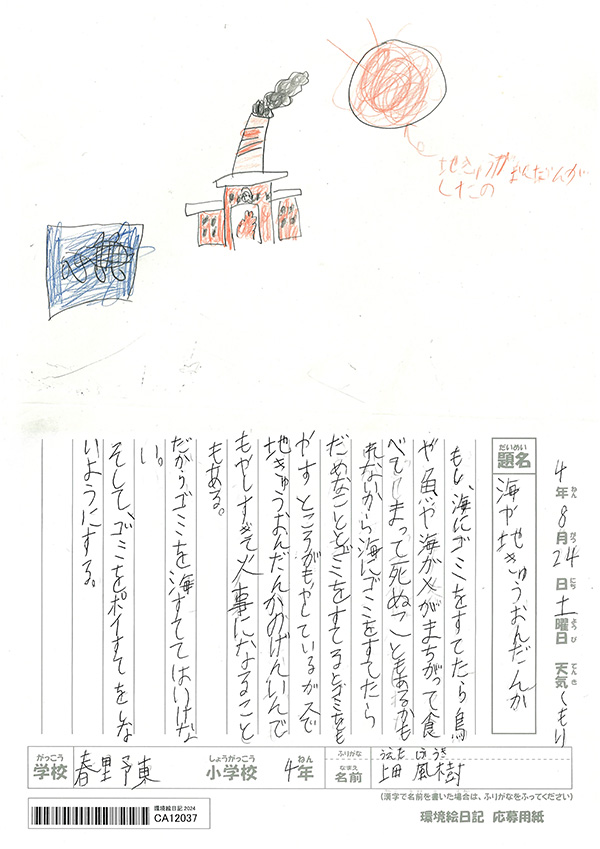 地きゅうがおんだんが
したの
4年8月24日土曜日 天気くもり
ねん がつ にち ようび てんき
だいめい
題名
海や地きゅうおんだんか
もし、海にゴミをすてたら鳥
や魚や海がメがまちがって食
べてしまって死ぬこともあるかも
れないから海にゴミをすてたら
だめなこととゴミをすてるとゴミをも
やすところがもやしているガスで
地きゅうおんだんかのげんいんで
もやしすぎて火事になること
もある。
だからゴミを海すててはいけな
い。
そして、ゴミをポイすてをしな
いようにする。
がっこう
学校
春里東
しょうがっこう
小学校
ねん
4年
ふりがな
うえだ ふうき
なまえ
名前
上田 風樹
(漢字で名前を書いた場合は、ふりがなをふってください)
環境絵日記2024
CA12037
環境絵日記 応募用紙